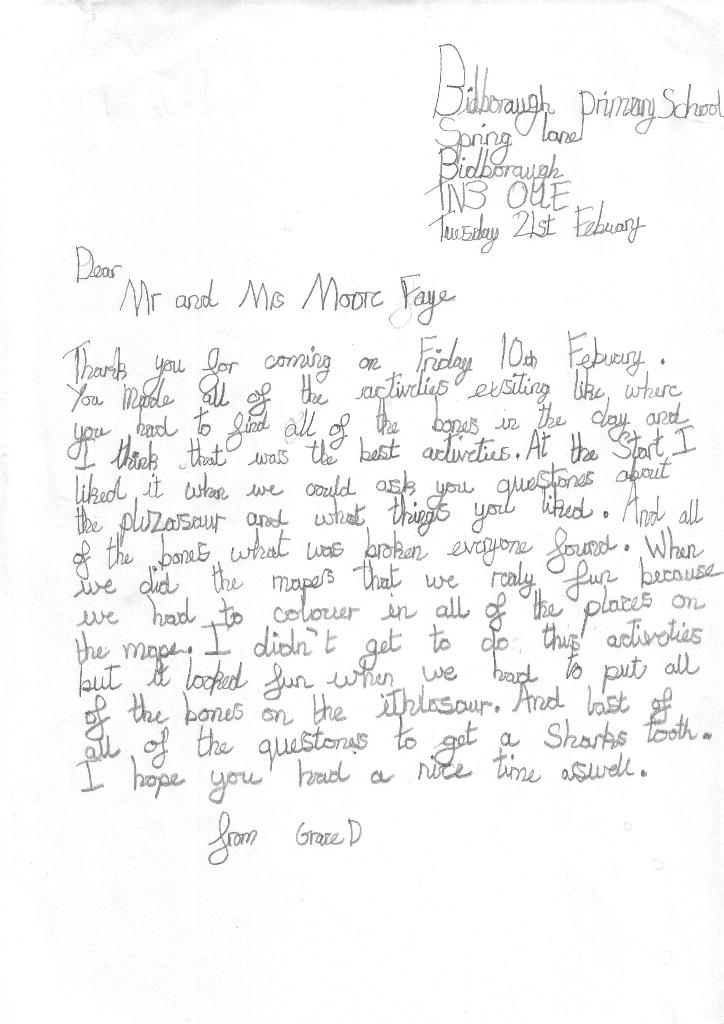 Bidborough primary School
Spring lane
Bidborough
TN3 0UE
Tuesday 21st Febuary
Dear
Mr and Mrs Moore Faye
Thank you for coming on Friday 10th Febuary.
You made all of the activeties exsiting like where
you had to find all of the bones in the clay and
I think that was the best activeties. At the Start I
liked it when we could ask you questones about
the plizasaur and what things you liked. And all
of the bones what was broken everyone found. When
we did the mapes that we realy fun because
we had to colouer in all of the places on
the mape. I didn't get to do this activeties
but it looked fun when we had to put all
of the bones on the ithlosaur. And last of
all of the questones to get a Sharks tooth.
I hope you had a nice time aswell.
from Grace D